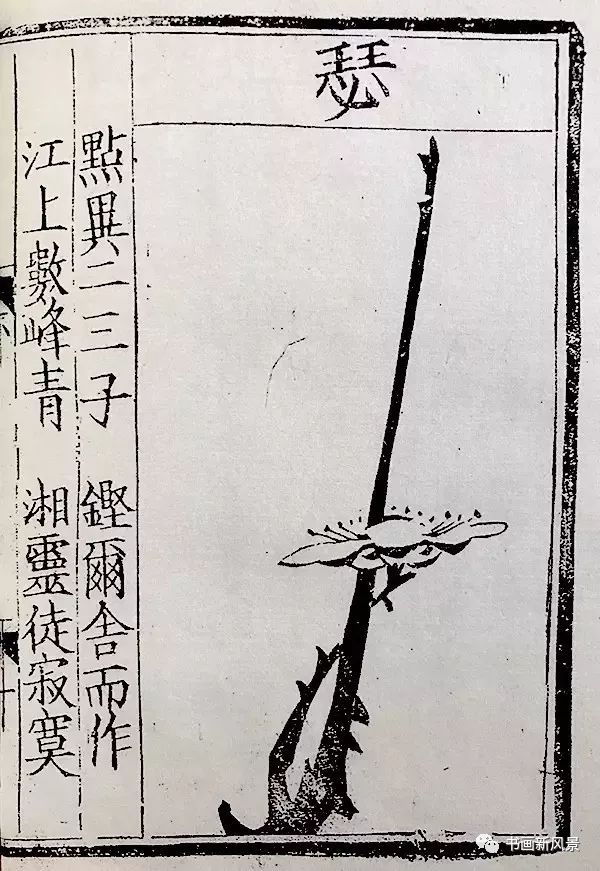 瑟
點異二三子 鏗爾舍而作
江上數峰青 湘靈徒寂寞
书画新风景